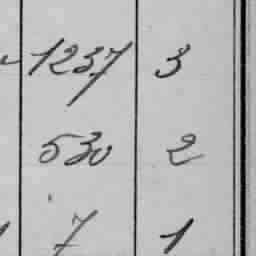 1237 3
530 2
7 1